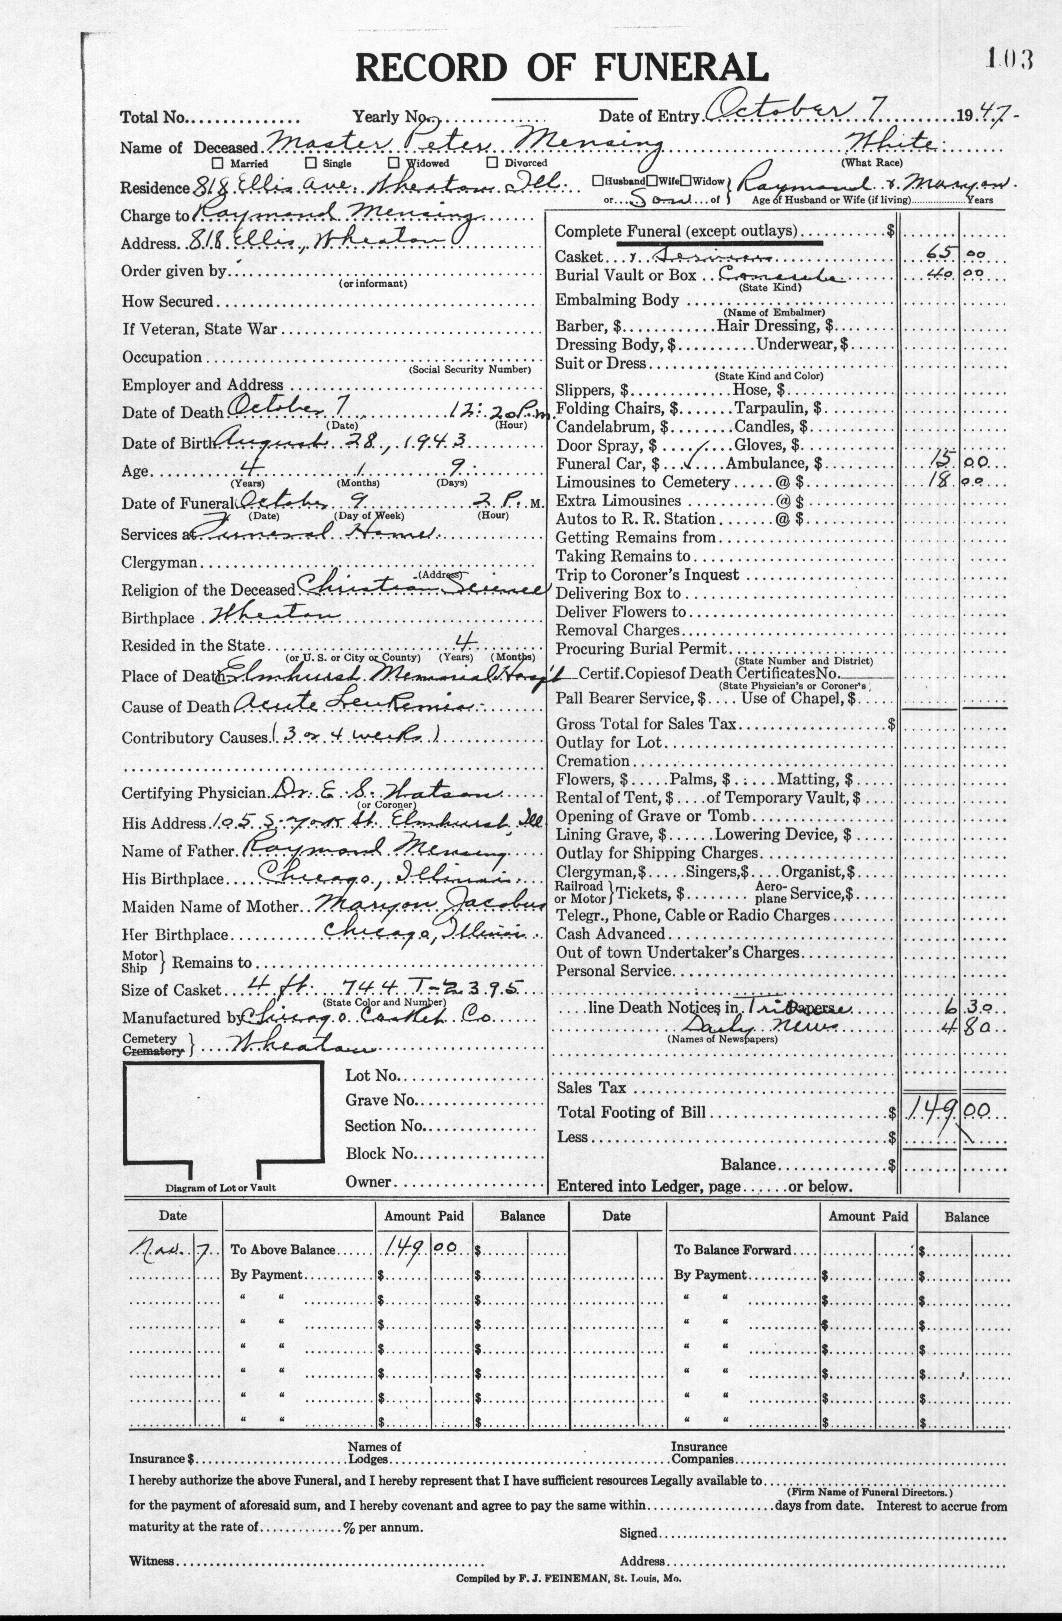 103
RECORD OF FUNERAL
Total No. Yearly No. Date of Entry October 7 1947-
Name of Deceased Master Peter Mensing White
Married Single Widowed Divorced (What Race)
Residence 818 Ellis Ave. Wheaton Ill. Husband Wife Widow } Raymond & Maryon
or Son of } Age of Husband or Wife (if living) Years
Charge to Raymond Mensing
Address 818 Ellis, Wheaton
Order given by
(or informant)
How Secured
If Veteran, State War
Occupation
(Social Security Number)
Employer and Address
Date of Death October 7 12:20 P.m.
(Date) (Hour)
Date of Birth August 28, 1943
Age 4 1 9
(Years) (Months) (Days)
Date of Funeral October 9 2 P. M.
(Date) (Day of Week) (Hour)
Services at Funeral Home
Clergyman
(Address)
Religion of the Deceased Christian Science
Birthplace Wheaton
Resided in the State 4
(or U. S. or City or County) (Years) (Months)
Place of Death Elmhurst Memorial Hosp't
Cause of Death Acute Leukemia
Contributory Causes (3 or 4 weeks)
Certifying Physician Dr. E. S. Watson
(or Coroner)
His Address 105 S. York St. Elmhurst, Ill
Name of Father Raymond Mensing
His Birthplace Chicago, Illinois
Maiden Name of Mother Maryon Jacobus
Her Birthplace Chicago, Illinois
Motor Ship } Remains to
Size of Casket 4 ft. 744 T-2395
(State Color and Number)
Manufactured by Chicago Casket Co
Cemetery Crematory } Wheaton
Lot No.
Grave No.
Section No.
Block No.
Owner
Diagram of Lot or Vault
Complete Funeral (except outlays) $
Casket & Services 65 00
Burial Vault or Box Concrete 40 00
(State Kind)
Embalming Body
(Name of Embalmer)
Barber, $ Hair Dressing, $
Dressing Body, $ Underwear, $
Suit or Dress
(State Kind and Color)
Slippers, $ Hose, $
Folding Chairs, $ Tarpaulin, $
Candelabrum, $ Candles, $
Door Spray, $ Gloves, $
Funeral Car, $ ✓ Ambulance, $ 15 00
Limousines to Cemetery @ $ 18 00
Extra Limousines @ $
Autos to R. R. Station @ $
Getting Remains from
Taking Remains to
Trip to Coroner's Inquest
Delivering Box to
Deliver Flowers to
Removal Charges
Procuring Burial Permit
(State Number and District)
Certif. Copies of Death Certificates No.
(State Physician's or Coroner's)
Pall Bearer Service, $ Use of Chapel, $
Gross Total for Sales Tax $
Outlay for Lot
Cremation
Flowers, $ Palms, $ Matting, $
Rental of Tent, $ of Temporary Vault, $
Opening of Grave or Tomb
Lining Grave, $ Lowering Device, $
Outlay for Shipping Charges
Clergyman, $ Singers, $ Organist, $
Railroad or Motor } Tickets, $ Aero-plane Service, $
Telegr., Phone, Cable or Radio Charges
Cash Advanced
Out of town Undertaker's Charges
Personal Service
line Death Notices in Papers Tribune 6 30
Daily News 4 80
(Names of Newspapers)
Sales Tax
Total Footing of Bill $ 149 00
Less $
Balance $
Entered into Ledger, page or below.
Date Amount Paid Balance Date Amount Paid Balance
Nov. 7 To Above Balance 149 00 $ To Balance Forward $
By Payment $ $ By Payment $ $
" " $ $ " " $ $
" " $ $ " " $ $
" " $ $ " " $ $
" " $ $ " " $ $
" " $ $ " " $ $
" " $ $ " " $ $
Insurance $ Names of Lodges Insurance Companies
I hereby authorize the above Funeral, and I hereby represent that I have sufficient resources Legally available to
(Firm Name of Funeral Directors.)
for the payment of aforesaid sum, and I hereby covenant and agree to pay the same within days from date. Interest to accrue from
maturity at the rate of % per annum.
Signed
Witness Address
Compiled by F. J. FEINEMAN, St. Louis, Mo.